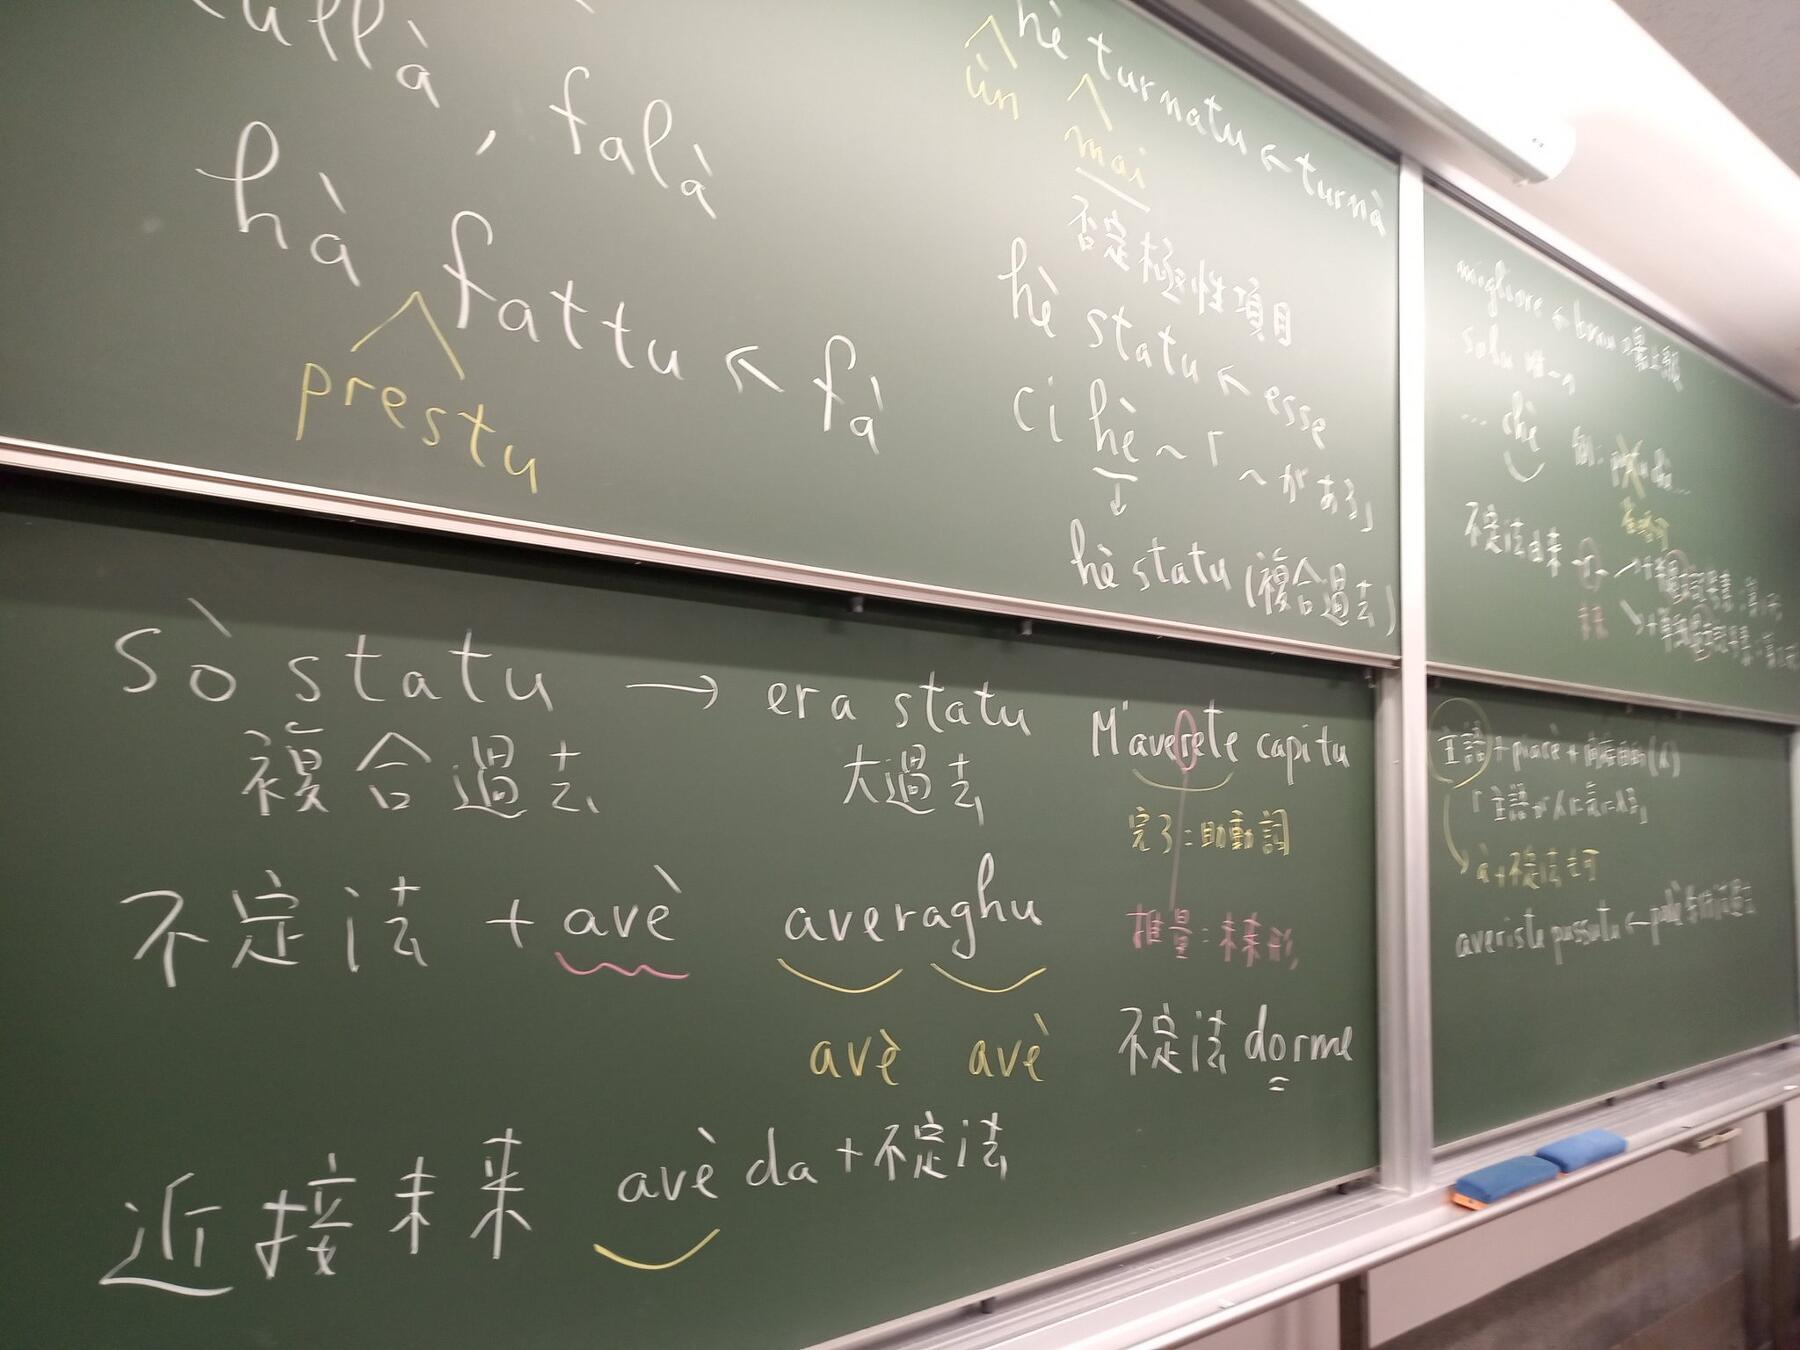 falà
hà fattu ← fà
prestu
hè turnatu ← turnà
ùn mai
否定極性項目
hè statu ← esse
ci hè ~ 「~がある」
hè statu (複合過去)
sò statu → era statu
複合過去 大過去
不定法 + avè averaghu
avè avè
近接未来 avè da + 不定法
M'averete capitu
完了:助動詞
推量:未来形
不定法 dorme
migliore ← bravu
solu
... chì 例:
不定法由来
主語 + piacè + 間接目的(人)
「主語が人に気に入る」
à+不定法も可
averiste pussutu ←